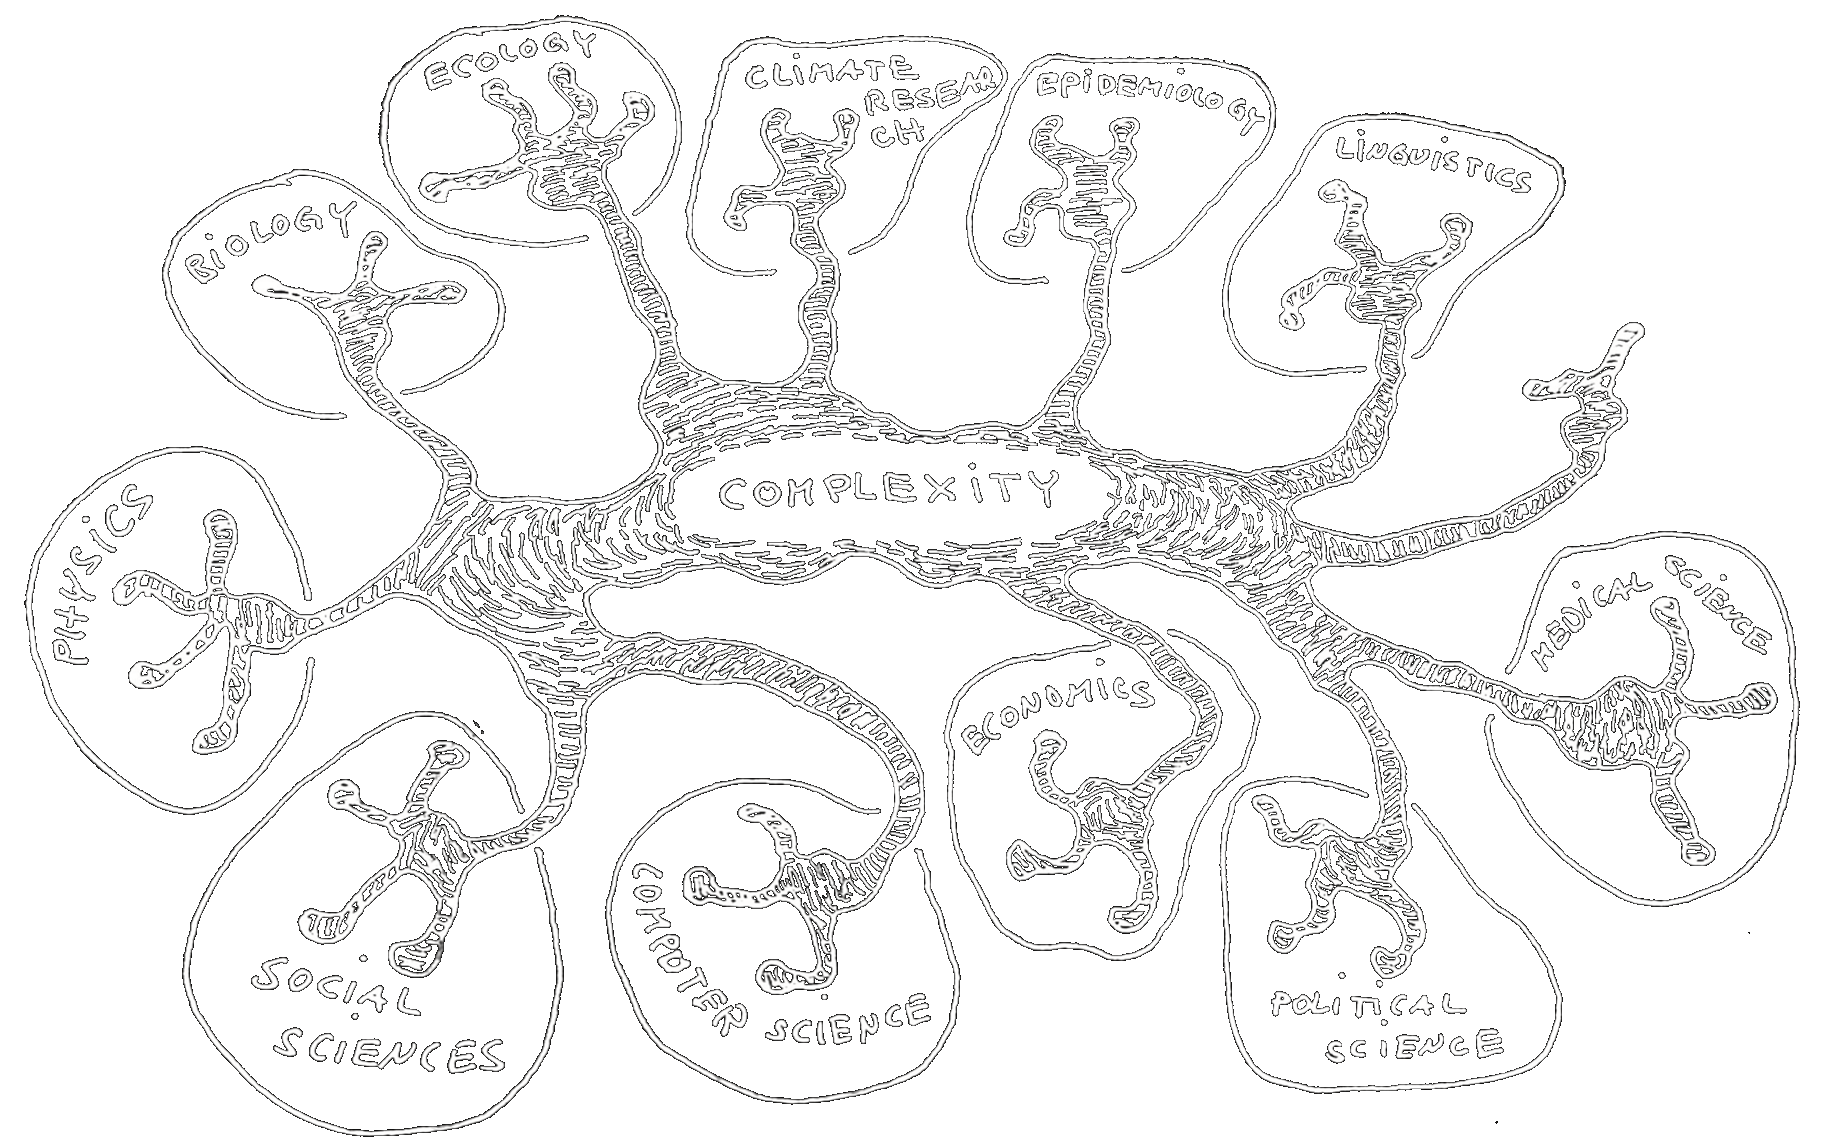 ECOLOGY
CLIMATE
RESEAR
CH
EPIDEMIOLOGY
LINGUISTICS
BIOLOGY
COMPLEXITY
PHYSICS
MEDICAL SCIENCE
ECONOMICS
SOCIAL
SCIENCES
COMPUTER SCIENCE
POLITICAL
SCIENCE